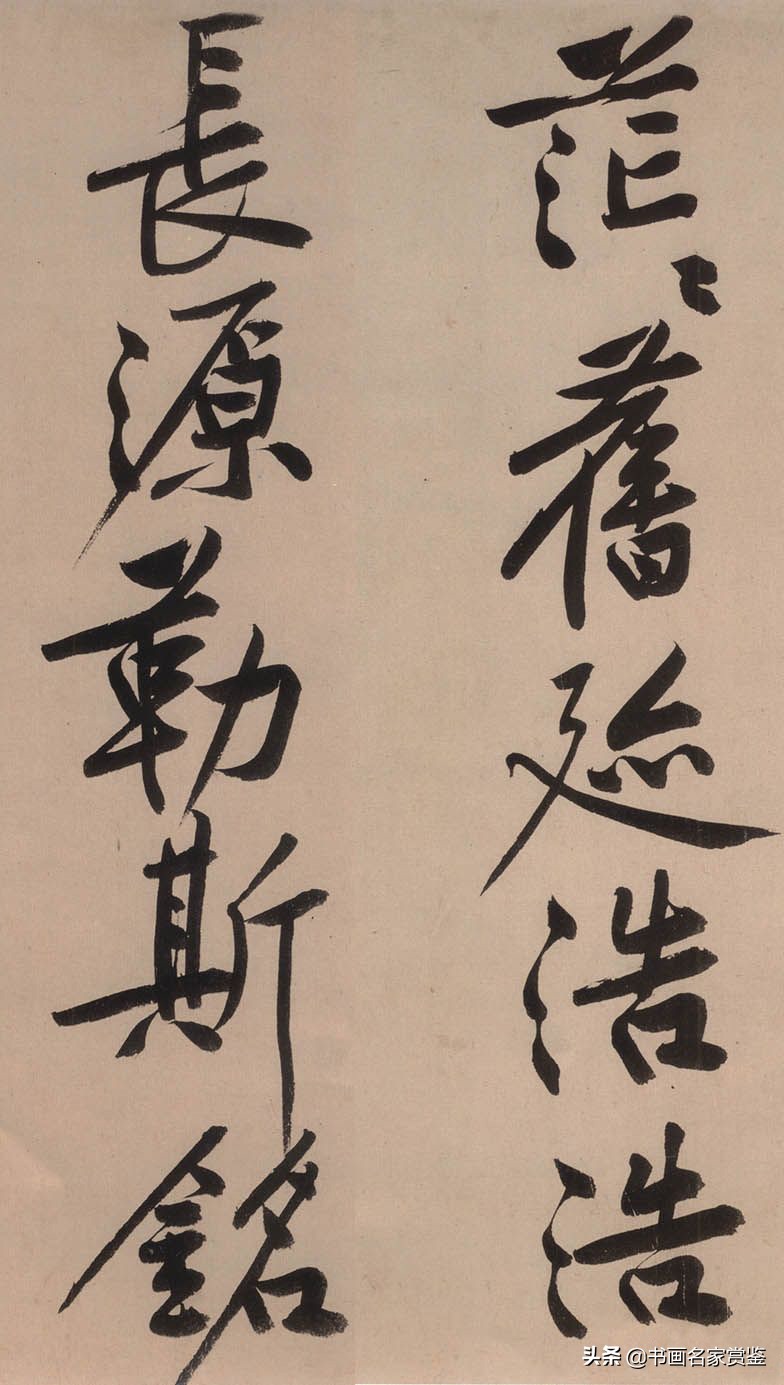 茫々舊迹浩浩
長源勒斯銘
头条 @书画名家赏鉴